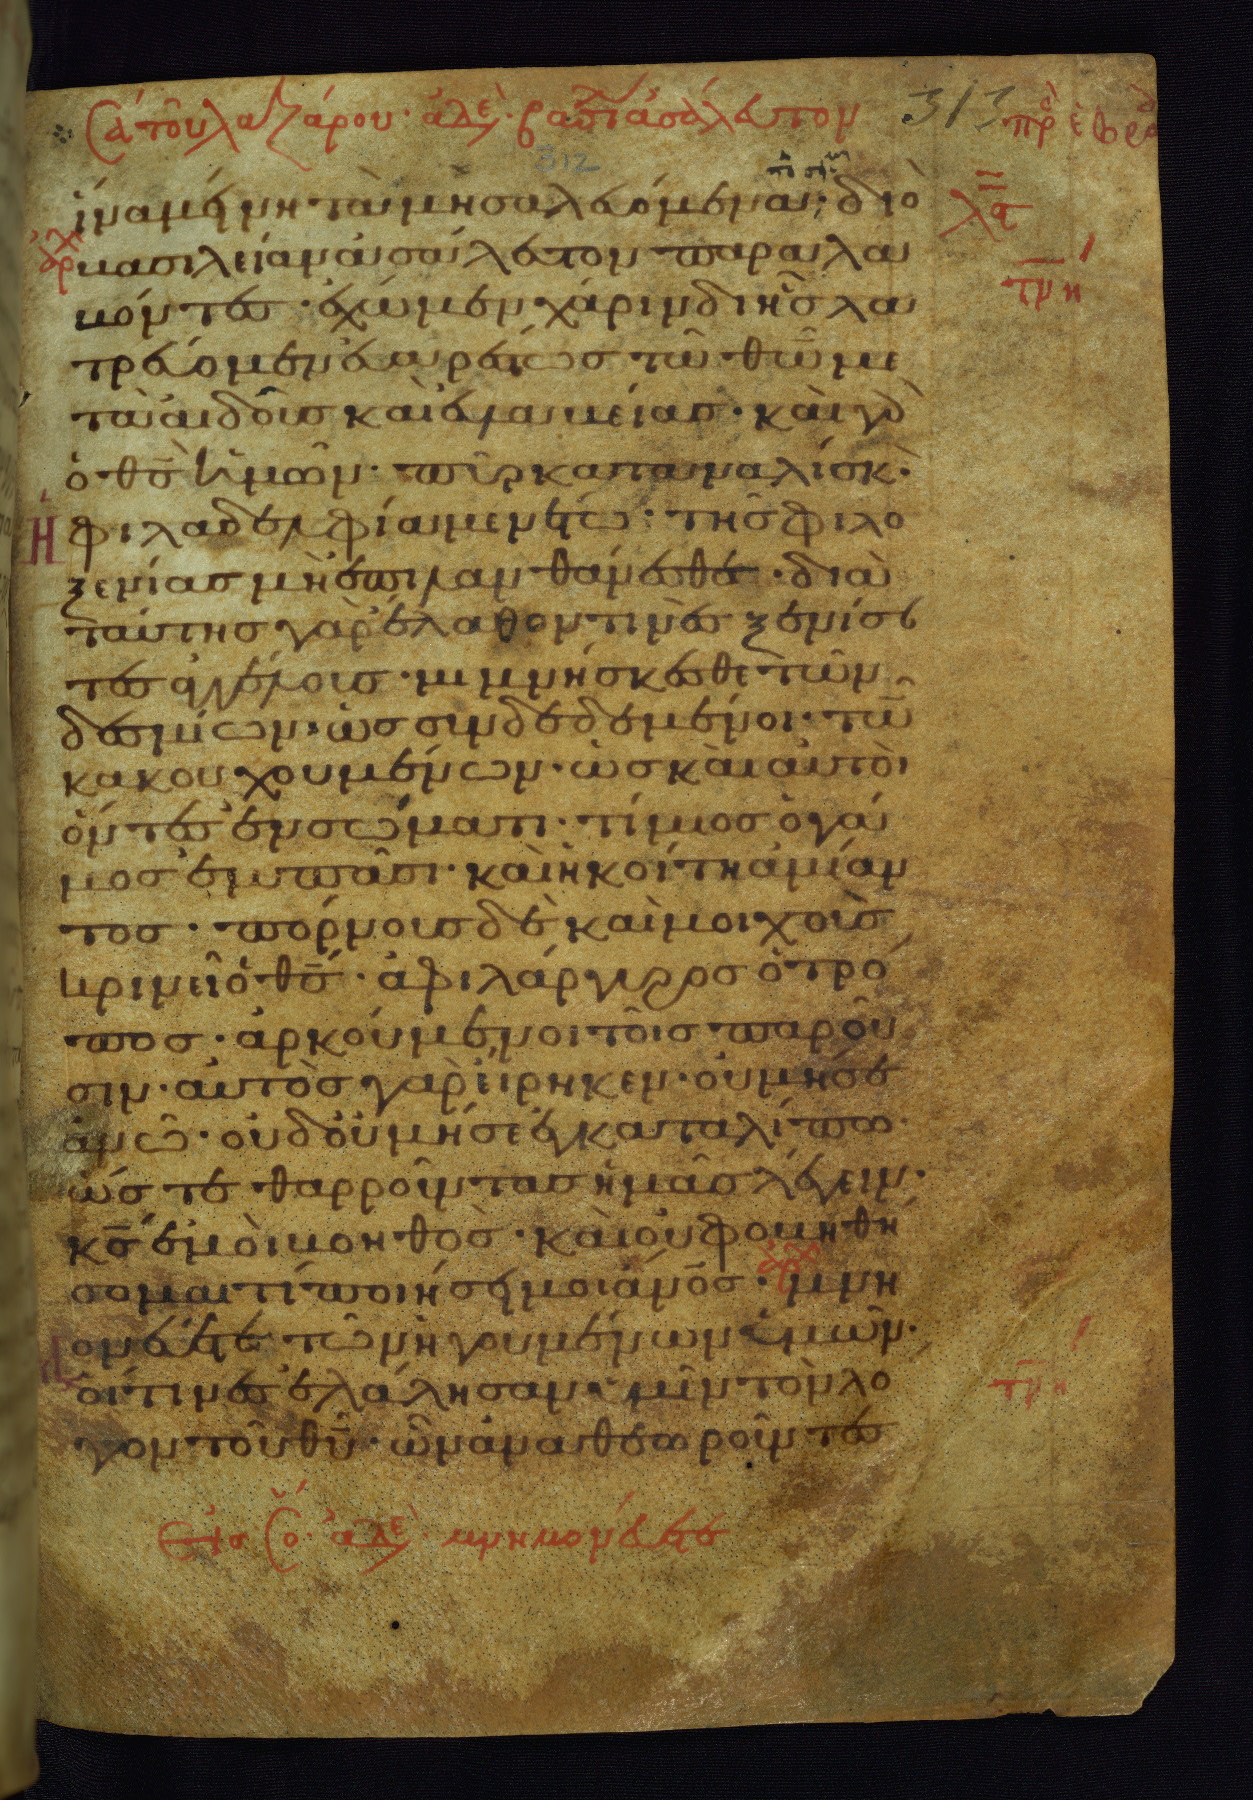 Σα τοῦ λαζάρου· ἀδελ βασιλ ἀσάλευτον
313
πρ ἑβρ
312
ἵνα μείνη τὰ μὴ σαλευόμενα· διὸ
βασιλείαν ἀσάλευτον παραλαμ
βάνοντες· ἔχωμεν χάριν δι ἧς λα
τρεύομεν εὐαρέστως τῶ θω με
τὰ αἰδοῦς καὶ εὐλαβείας· καὶ γὰρ
ὁ θς ἡμῶν· πῦρ καταναλίσκον·
Ἡ φιλαδελφία μενέτω· τῆς φιλο
ξενίας μὴ ἐπιλανθάνεσθε· διὰ
ταύτης γὰρ ἔλαθον τινὲς ξενίσαν
τες ἀγγέλους· μιμνήσκεσθε τῶν
δεσμίων· ὡς συνδεδεμένοι· τῶν
κακουχουμένων· ὡς καὶ αὐτοὶ
ὄντες ἐν σώματι· τίμιος ὁ γά
μος ἐν πᾶσι· καὶ ἡ κοίτη ἀμίαν
τος· πόρνους δὲ καὶ μοιχοὺς
κρινεῖ ὁ θς· ἀφιλάργυρος ὁ τρό
πος· ἀρκούμενοι τοῖς παροῦ
σιν· αὐτὸς γὰρ εἴρηκεν· οὐ μή σε
ἀνῶ· οὐδ οὐ μή σε ἐγκαταλίπω·
ὥστε θαρροῦντας ἡμᾶς λέγειν·
κς ἐμοὶ βοηθὸς· καὶ οὐ φοβηθή
σομαι τί ποιήσει μοι ἄνος· μνη
μονεύετε τῶν ἡγουμένων ὑμῶν·
οἵτινες ἐλάλησαν ὑμῖν τὸν λό
γον τοῦ θυ· ὧν ἀναθεωροῦντες
ἀδελ μνημονεύετε